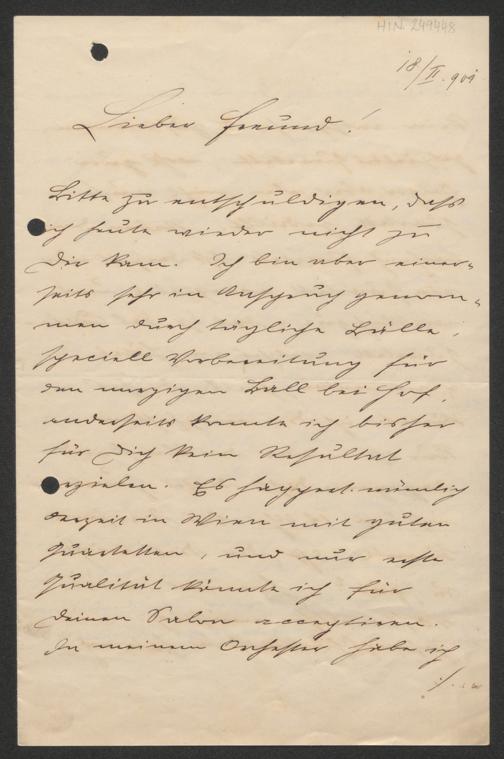 HIN. 249448
18/II. 901
Lieber Freund!
Bitte zu entschuldigen, daß
ich heute wieder nicht zu
Dir kam. Ich bin aber einer-
seits sehr in Anspruch genom-
men durch tägliche Bälle,
speciell Vorbereitung für
den morgigen Ball bei Hof,
anderseits konnte ich bisher
für Dich kein Resultat
erzielen. Es happert nämlich
derzeit in Wien mit guten
Quartetten, und nur erste
Qualität könnte ich für
Deinen Salon acceptiren.
In meinem Orchester habe ich
./.